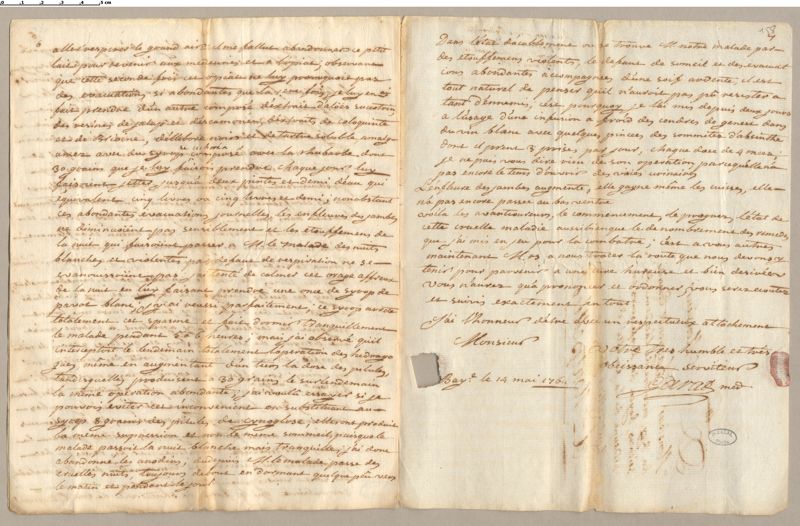 6
alloit respirer le grand air. il me fallut abandonner ce petit
lait pour revenir aux et a l'opiat, observant
que cette seconde fois cet opiat ne luy provoquoit pas
des evacuations si abondantes que la fois, je luy en
faire prendre d'un autre composé d'extraits d'aloes
des resines de jalap et de scamonée, d'extraits de coloquinte
et de d'ellebore noir et de tartre soluble
avec du syrop composé avec la rhubarbe dont
30 grains que je luy faisois prendre chaque jour luy
faisoient jetter jusques deux pintes et demi d'eau qui
equivalent cinq livres ou cinq livres et demi; nonobstant
ces abondantes evacuations journelles, les enflures des jambes
ne diminuoient pas sensiblement et les etouffemens de
la nuit qui faisoient passer a M. le malade des nuits
blanches et violentes par defaut de respiration ne s'e-
vanouissoient pas, j'ai tenté de calmer cet orage affreux
de la nuit en luy faisant prendre une once de syrop de
pavot blanc, j'y ai reussi parfaitement, ce syrop arrete
totalement ce spasme et fait dormir tranquillement
le malade pendant 5 ou 6 heures; mais j'ai observé qu'il
interceptoit le lendemain totalement l'operation des hydrago-
gues, même en augmentant d'un tiers la dose des pilules,
tandis qu'elles produisent a 30 grains le surlendemain
la même operation abondante; j'ai voulu essayer si je
pouvois eviter cet inconvenient en substituant au
syrop 8 grains des pilules de cynoglose, elles ont produit
la même supression et non le même sommeil, puisque le
malade passoit la nuit blanche mais tranquille; j'ai donc
abandonné les anodins, au demeurant M. le malade passe des
cruelles nuits toujours debout en dormant quelque peu vers
le matin et pendant le jour.
Dans l'état d'accablement ou se trouve M. notre malade par
des etouffemens violents, le defaut de sommeil et des evacuat
ions abondantes accompagnées d'une soif ardente, il est
tout naturel de penser qu'il n'auroit pas pû resister a
tant d'ennemis, c'est pourquoy je l'ai mis depuis deux jours
a l'usage d'une infusion a froid des cendres de genest dans
du vin blanc avec quelques pincées des sommités d'absinthe
dont il prend 3 prises par jour, chaque dose de 4 onces;
je ne puis vous dire rien de son operation parce qu'elle n'a
pas encore le tems d'ouvrir des voies urinaires
L'enflure des jambes augmente, elle gagne même les cuisses, elle
n'a pas encore passé au bas ventre
voila les avantcoureurs, le commencement, le progrez, l'état de
cette cruelle maladie aussi bien que le denombrement des remedes
que j'ai mis en jeu pour la combatre; c'est a vous autres
maintenant M.rs a nous tracer la route que nous devons y
tenir pour parvenir a une cure heureuse et bien desirée
vous n'aurez que prononcer et ordonner, vous serez ecoutez
et suivis exactement en tout
J'ai l'honneur d'être avec un respectueux attachement
Monsieur
Votre tres humble et très
obeissant serviteur
med
Bay.e le 14 mai 1764